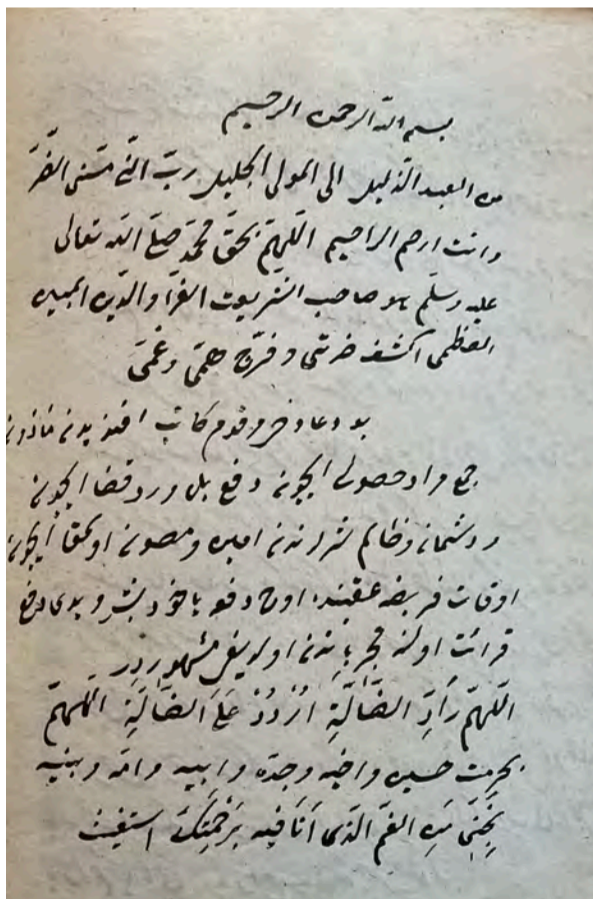 بسم الله الرحمن الرحيم
من العبد الذليل الى المولى الجليل ربّ انّى مسّنى الضّرّ
وانت ارحم الراحمين اللّهمّ بحقّ محمّد صلّى الله تعالى
عليه وسلّم صاحب الشريعت الغرّا والدّين المبين
العظمى اكشف ضرّى وفرّج همّى وغمّى
بو دعا دخى مخدوم كاتب افندیدن مأذون
جمع مراد حصولى ايچون دفع بلا و رد قضا ايچون
و دشمان و ظالم شرلرندن امين و مصون اولمق ايچون
اوقات فريضه عقبنده اوچ دفعه ياخود بش و يدى دفع
قرائت اولنه مجرباتدن اولديغى مشهوردر
اللّهمّ رَادِّ الضَّالَّةِ اُرْدُدْ عَلَىَّ الضَّالَّةِ اللّهمّ
بحرمت حسين واخيه وجدّه وابيه وامّه وبنيه
نَجِّنِى مِنَ الغمّ الّذى اَنَا فيه بِرَحْمَتِكَ استغيث